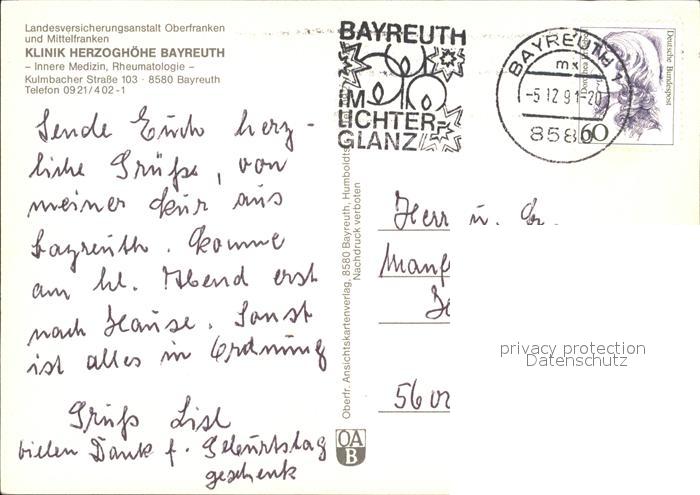 Landesversicherungsanstalt Oberfranken
und Mittelfranken
KLINIK HERZOGHÖHE BAYREUTH
– Innere Medizin, Rheumatologie –
Kulmbacher Straße 103 · 8580 Bayreuth
Telefon 0921/402-1
BAYREUTH
IM
LICHTER-
GLANZ
BAYREUTH 1
mx
-5.12.91-20
8580
60
Deutsche Bundespost
Sende Euch herz-
liche Grüße, von
meiner Kur aus
Bayreuth. Komme
am hl. Abend erst
nach Hause. Sonst
ist alles in Ordnung
Gruß Lisl
vielen Dank f. Geburtstag
geschenk
Oberfr. Ansichtskartenverlag, 8580 Bayreuth, Humboldts
Nachdruck verboten
OA
B
Herr u.
Manf
560
privacy protection
Datenschutz